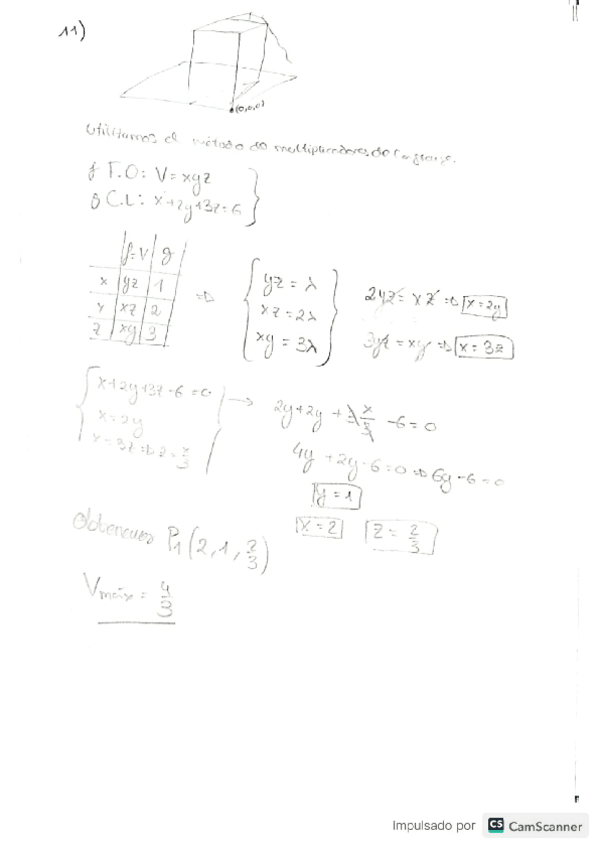 11)
(0,0,0)
Utilizamos el método de multiplicadores de Lagrange.
f F.O: V = xyz
g C.L: x+2y+3z=6
f=V g
x yz 1
y xz 2
z xy 3
=> yz = λ
xz = 2λ
xy = 3λ
2yz = xz => x = 2y
3yz = xy => x = 3z
x+2y+3z-6=0
x=2y
x=3z => z = x/3
→ 2y+2y+3 x/3 -6=0
4y+2y-6=0 => 6y-6=0
y=1
x=2 z = 2/3
Obtenemos P1 (2,1,2/3)
Vmáx = 4/3
Impulsado por CS CamScanner